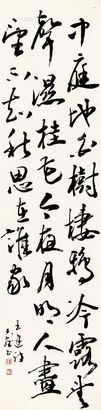 中庭地白樹棲鴉冷露無
聲濕桂花今夜月明人盡
望不知秋思在誰家
王建詩